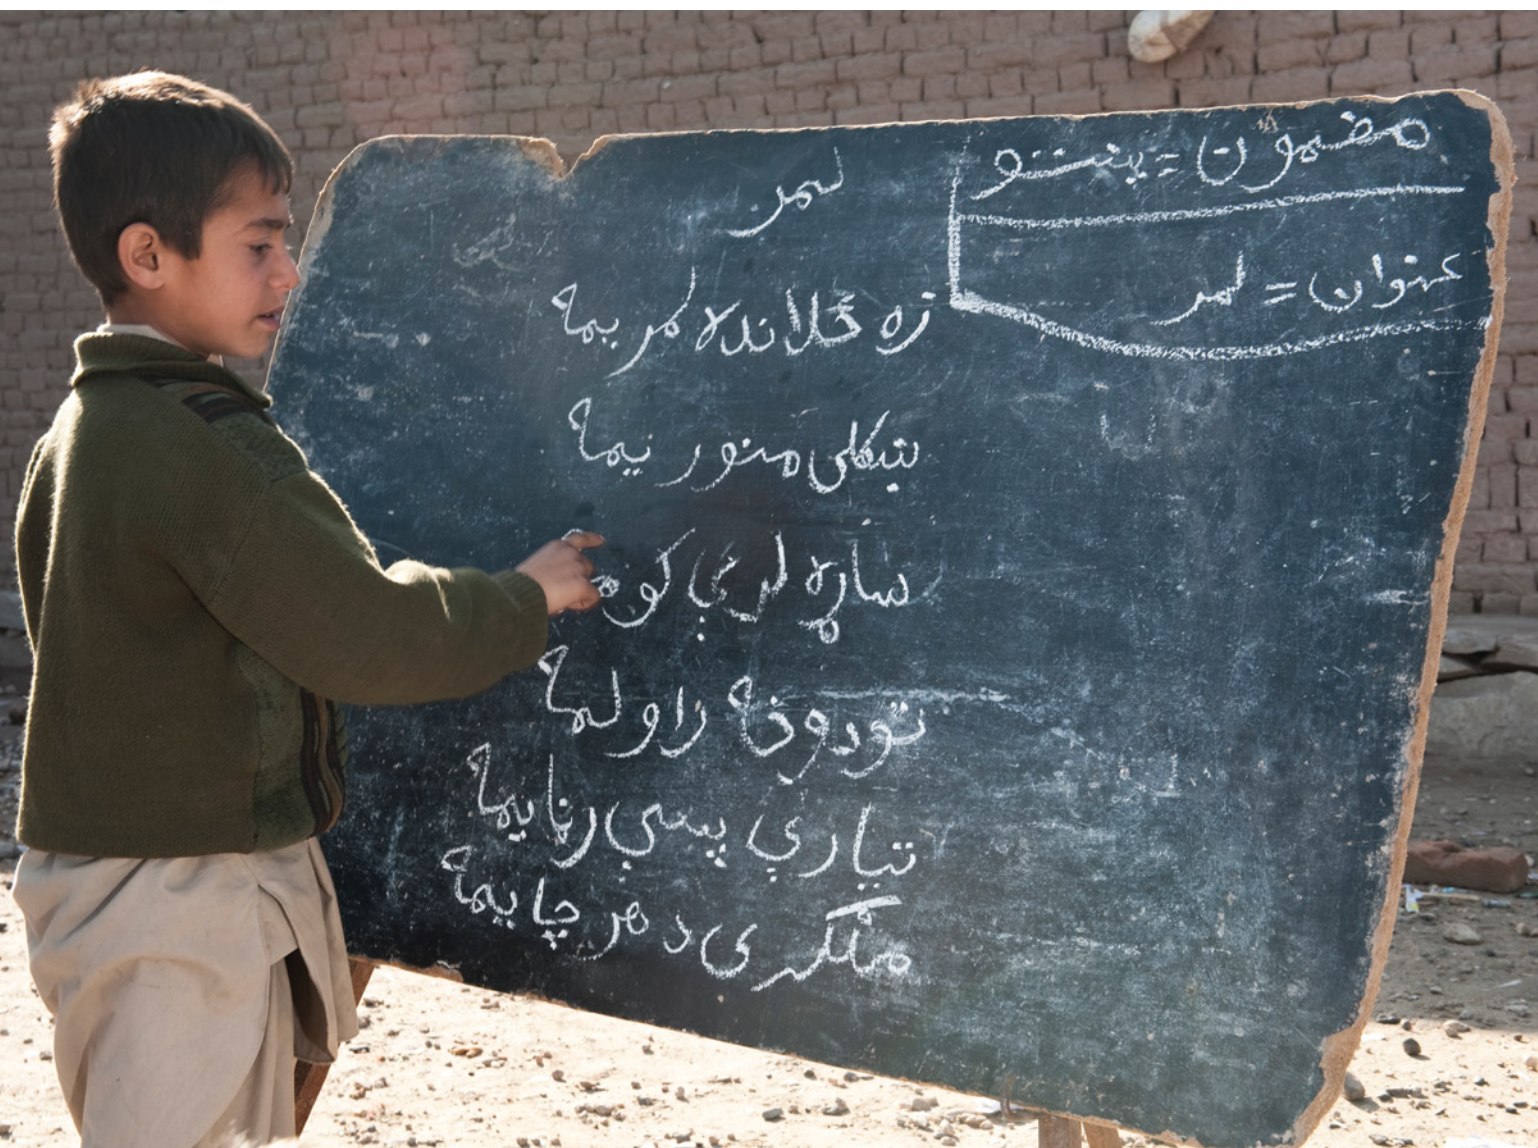 مضمون = پښتو
عنوان = لمر
لمر
زه ځلانده لمر یمه
ښکلی منور یمه
ساړه لرې کومه
تودوخه راولمه
تیارې پسې رڼا یمه
ملګری د هر چا یمه